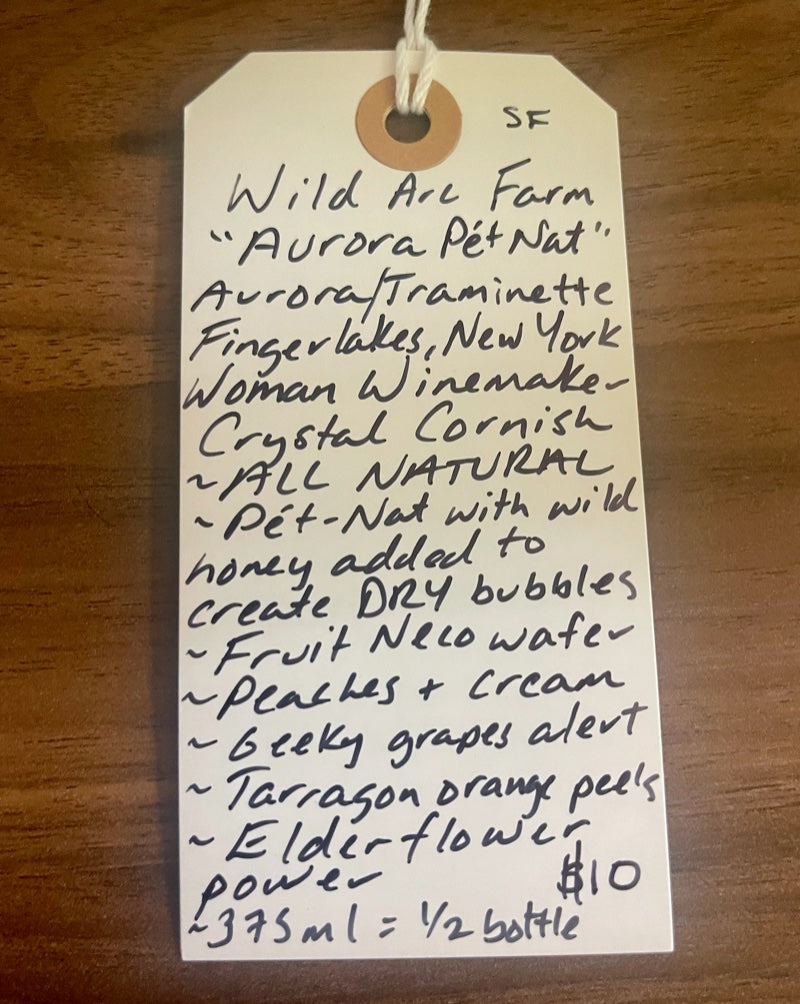 SF
Wild Arc Farm
"Aurora Pét Nat"
Aurora/Traminette
Fingerlakes, New York
Woman Winemaker
Crystal Cornish
~ALL NATURAL
~Pét-Nat with wild
honey added to
create DRY bubbles
~Fruit Neco wafer
~Peaches + cream
~Geeky grapes alert
~Tarragon orange peels
~Elderflower
power $10
~375ml = 1/2 bottle